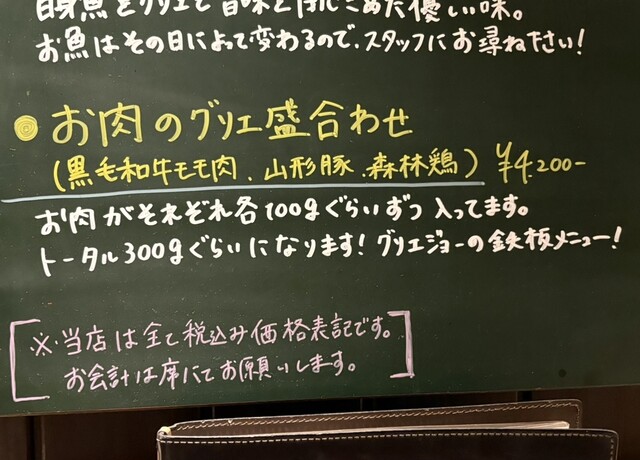 白身魚をグリエして旨味を閉じこめた優しい味。
お魚はその日によって変わるので、スタッフにお尋ね下さい！
お肉のグリエ盛合わせ
(黒毛和牛モモ肉、山形豚、森林鶏) ¥4.200-
お肉がそれぞれ各100gぐらいずつ入ってます。
トータル300gぐらいになります！グリエジョーの鉄板メニュー！
※当店は全て税込み価格表記です。
お会計は席にてお願いします。